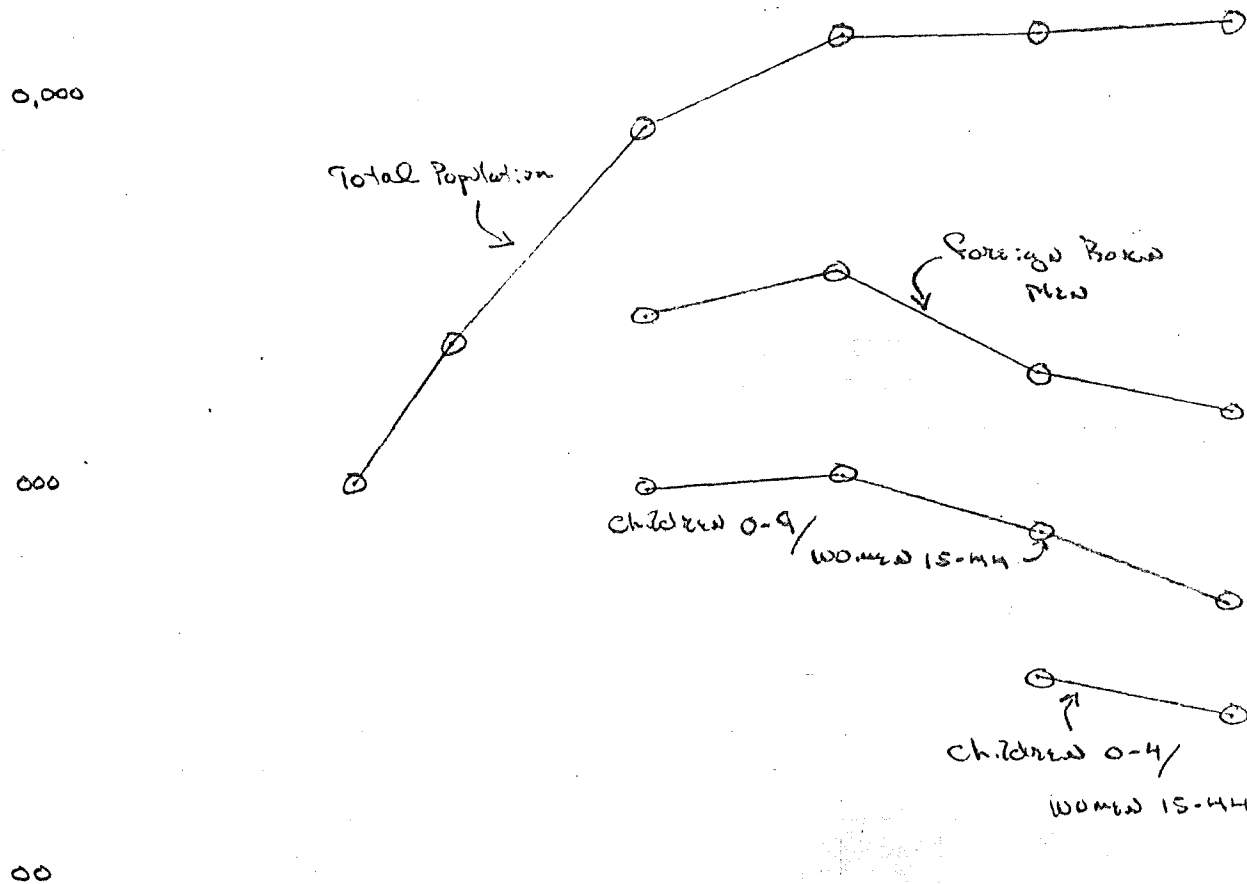 0,000
Total Population
Foreign Born
Men
000
Children 0-9/
Women 15-44
Children 0-4/
Women 15-44
00